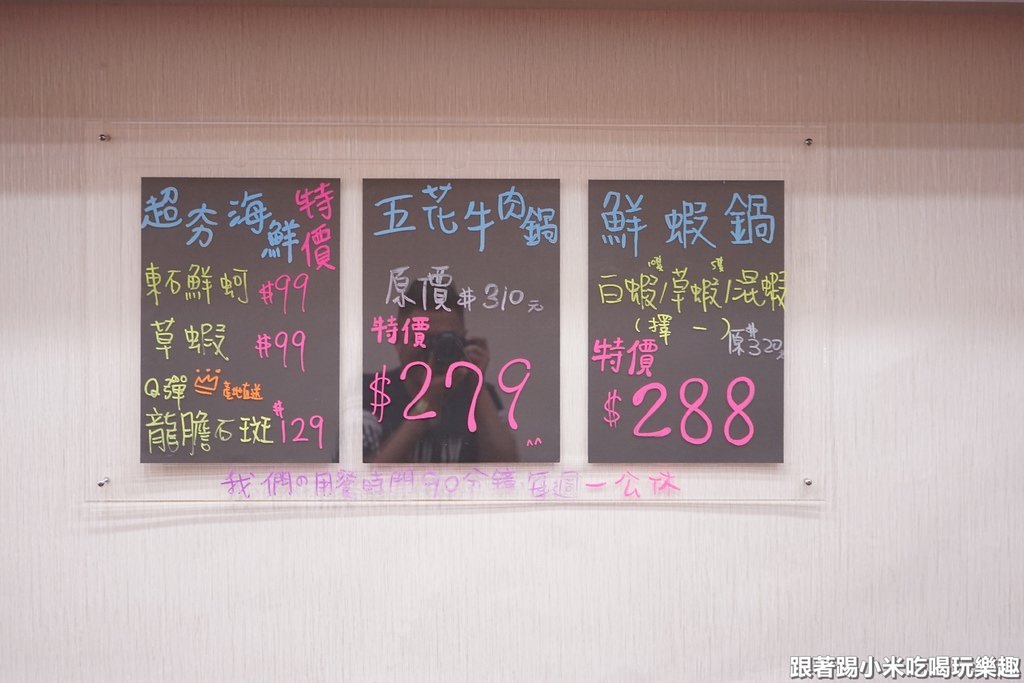 超夯海鮮特價
東石鮮蚵 $99
草蝦 $99
Q彈 產地直送
龍膽石斑 $129
五花牛肉鍋
原價$310元
特價
$279
^^
鮮蝦鍋
白蝦/草蝦/混蝦
(擇一) 原$320
特價
$288
我們の用餐時間90分鐘 每週一公休
跟著踢小米吃喝玩樂趣